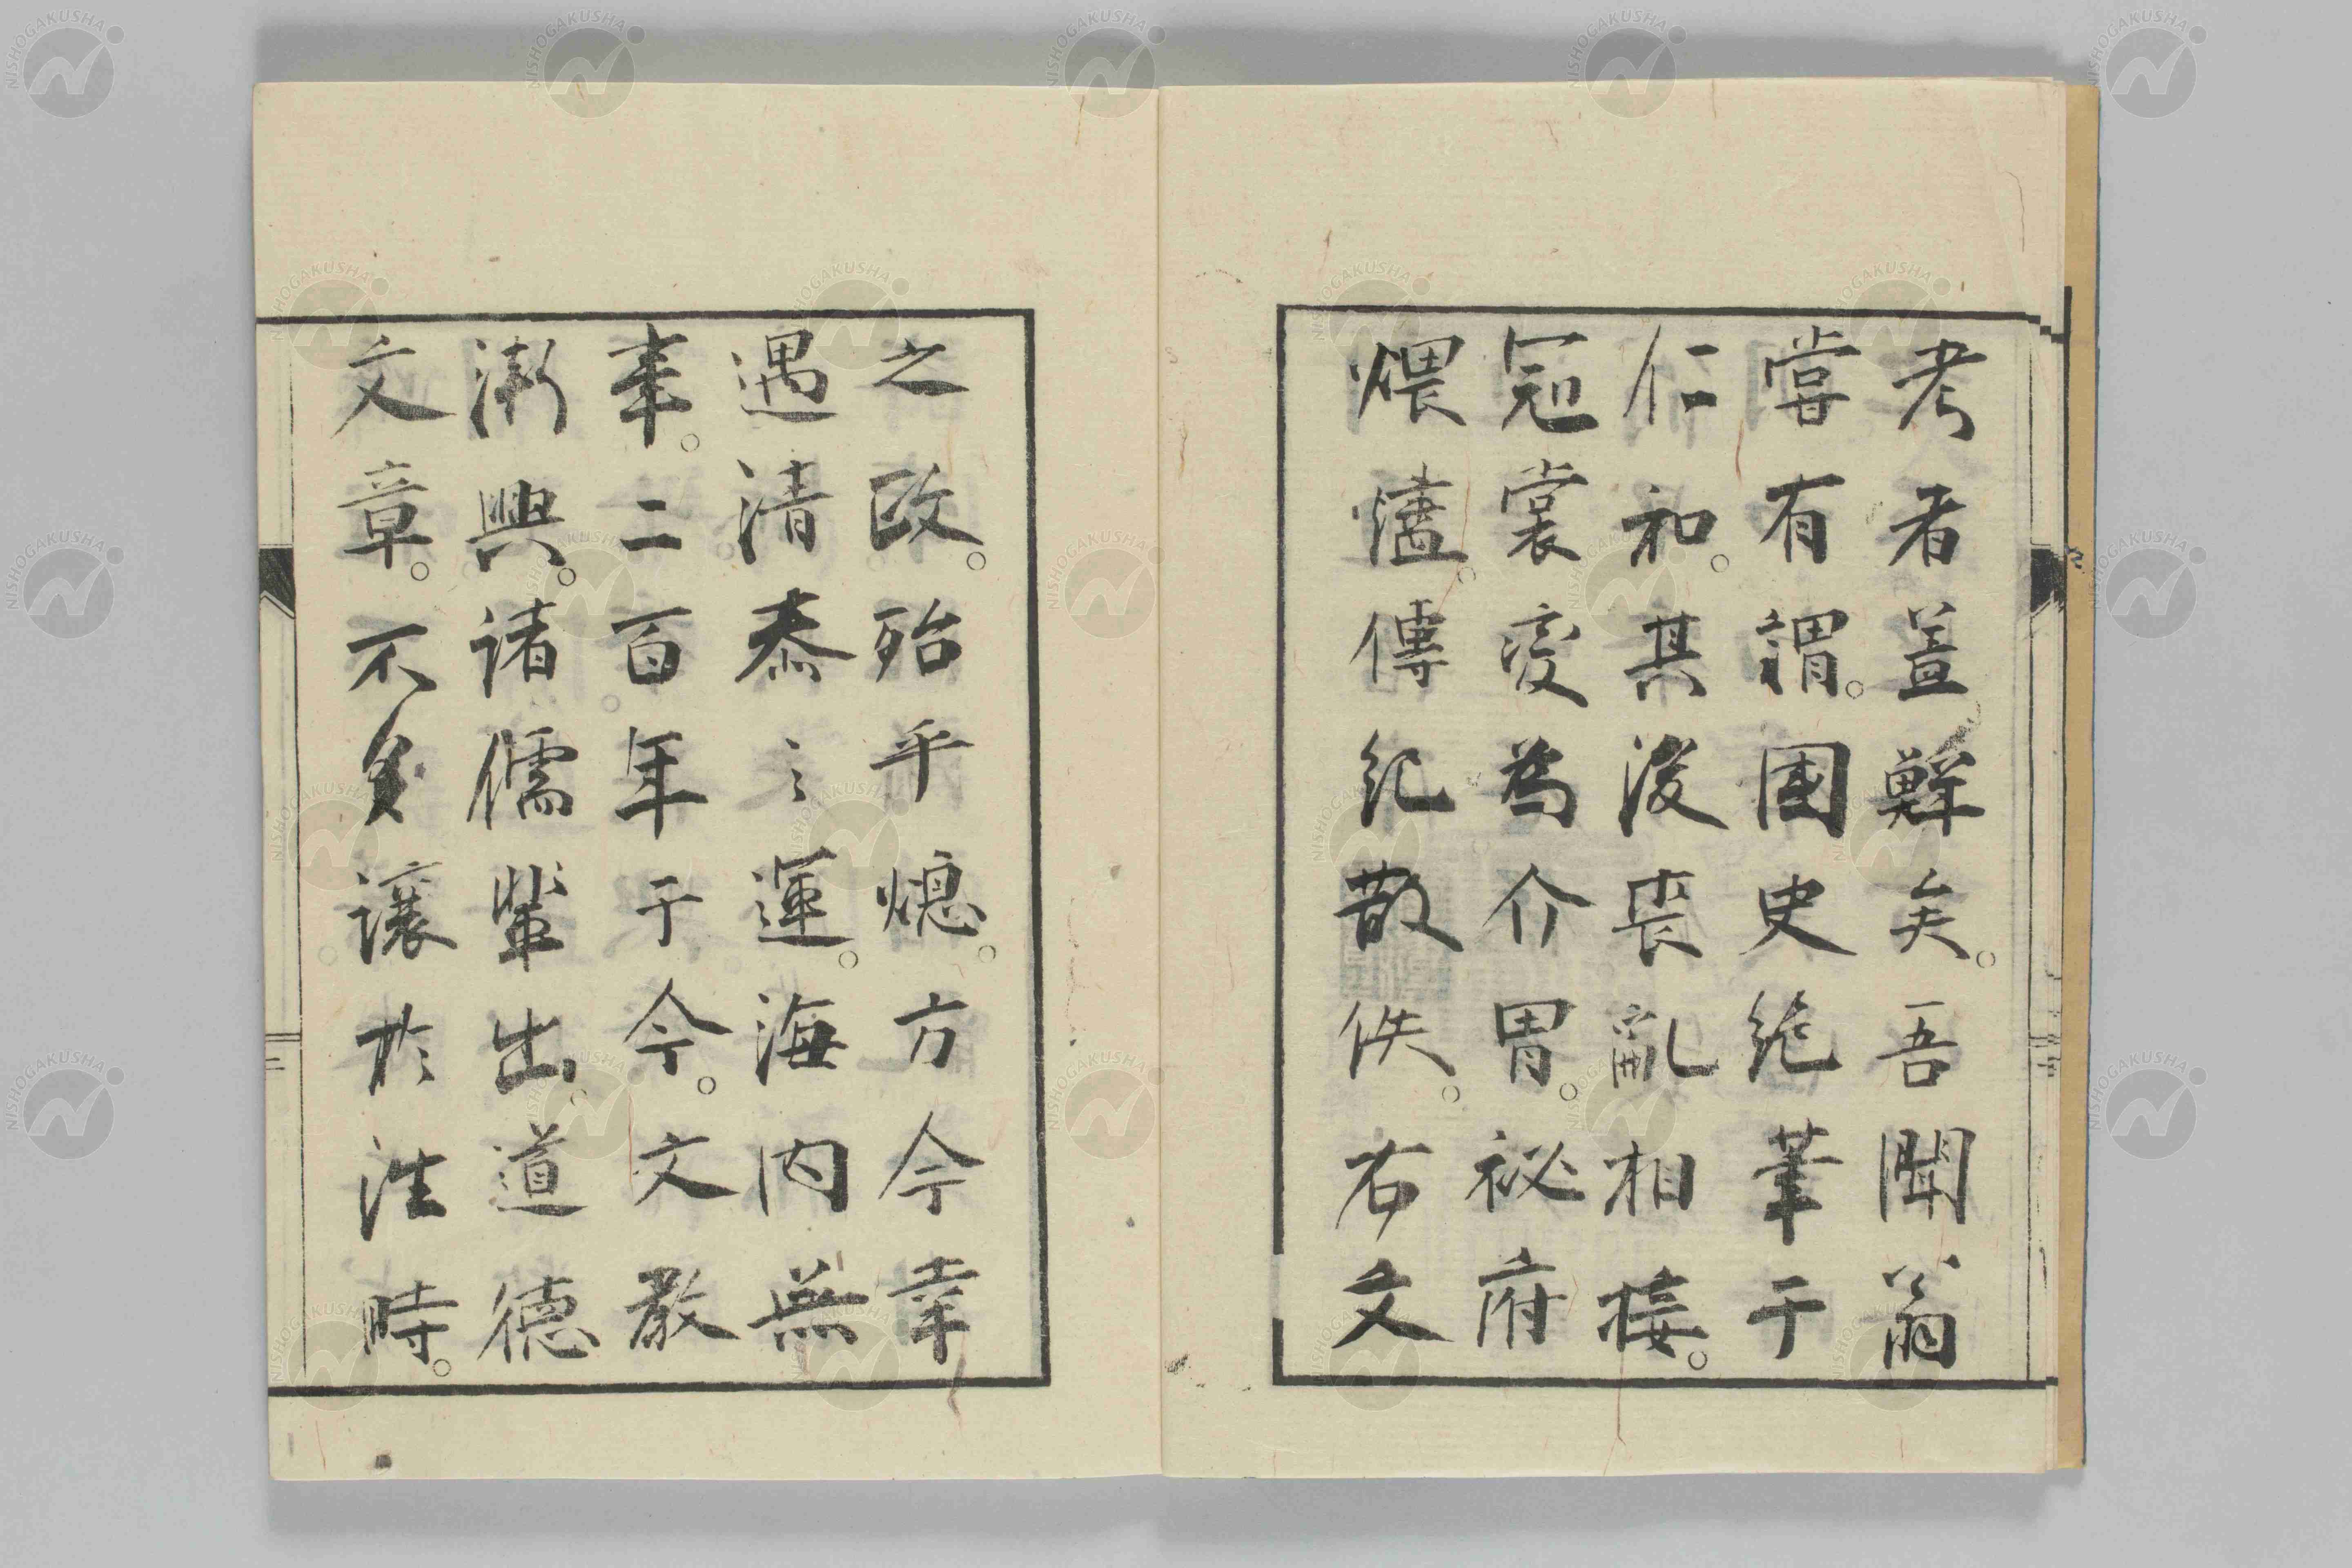 考者蓋鮮矣。吾聞翁
嘗有謂。國史絶筆于
仁和。其後喪亂相接。
冠裳變為介冑。祕府
煨燼。傳紀散佚。右文
之政。殆乎熄。方今幸
遇清泰之運。海内無
事。二百年于今。文敎
漸興。諸儒輩出。道德
文章。不多讓於往時。
NISHOGAKUSHA